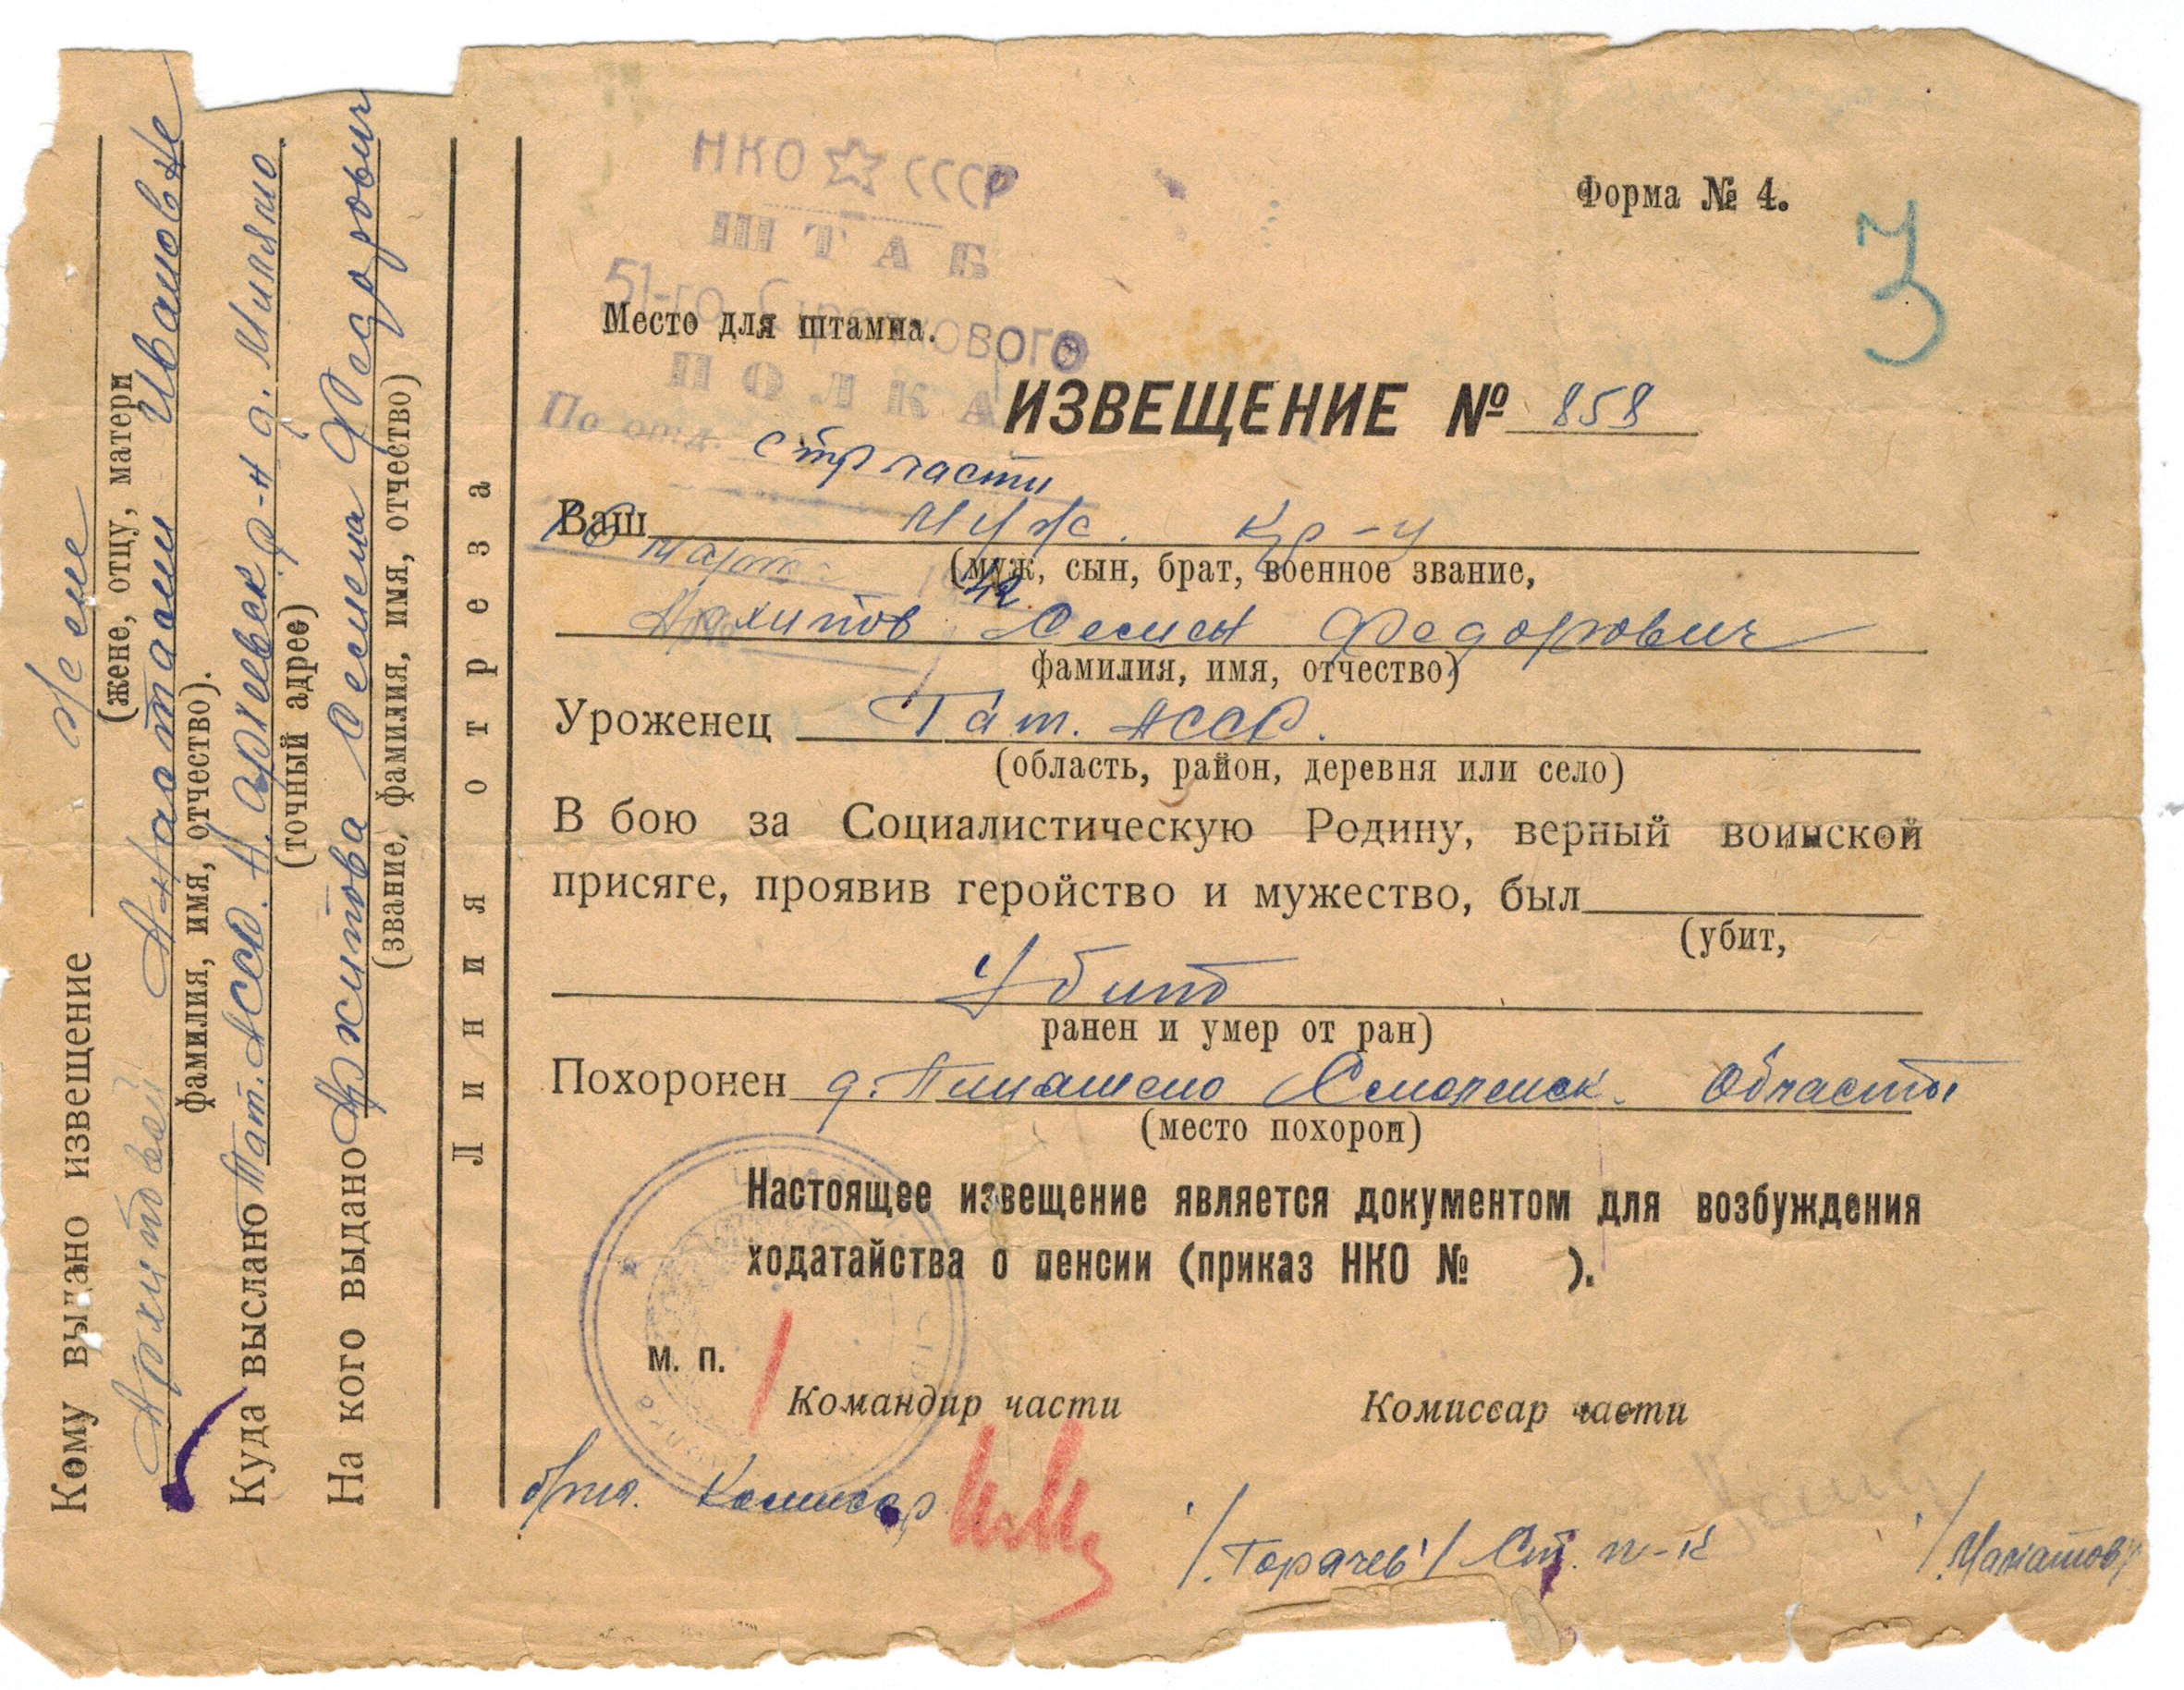 Кому выдано извещение жене
(жене, отцу, матери
Архиповой Наталии Ивановне
фамилия, имя, отчество).
Куда выслано Тат. АССР. Н. р-н д.
(точный адрес)
На кого выдано Архипова Семена Федорович
(звание, фамилия, имя, отчество)
Линия отреза
НКО СССР
ШТАБ
51-го Стрелкового
ПОЛКА
По отд. стр части
16 март 42
Форма № 4.
3
Место для штампа.
ИЗВЕЩЕНИЕ № 858
Ваш муж. кр-ц
(муж, сын, брат, военное звание,
Архипов Семен Федорович
фамилия, имя, отчество)
Уроженец Тат. АССР.
(область, район, деревня или село)
В бою за Социалистическую Родину, верный воинской
присяге, проявив геройство и мужество, был
(убит,
Убит
ранен и умер от ран)
Похоронен д. Смоленск. Области
(место похорон)
Настоящее извещение является документом для возбуждения
ходатайства о пенсии (приказ НКО № ).
М. П.
Командир части Комиссар части
Комиссар /Горячев/ Ст. п-к